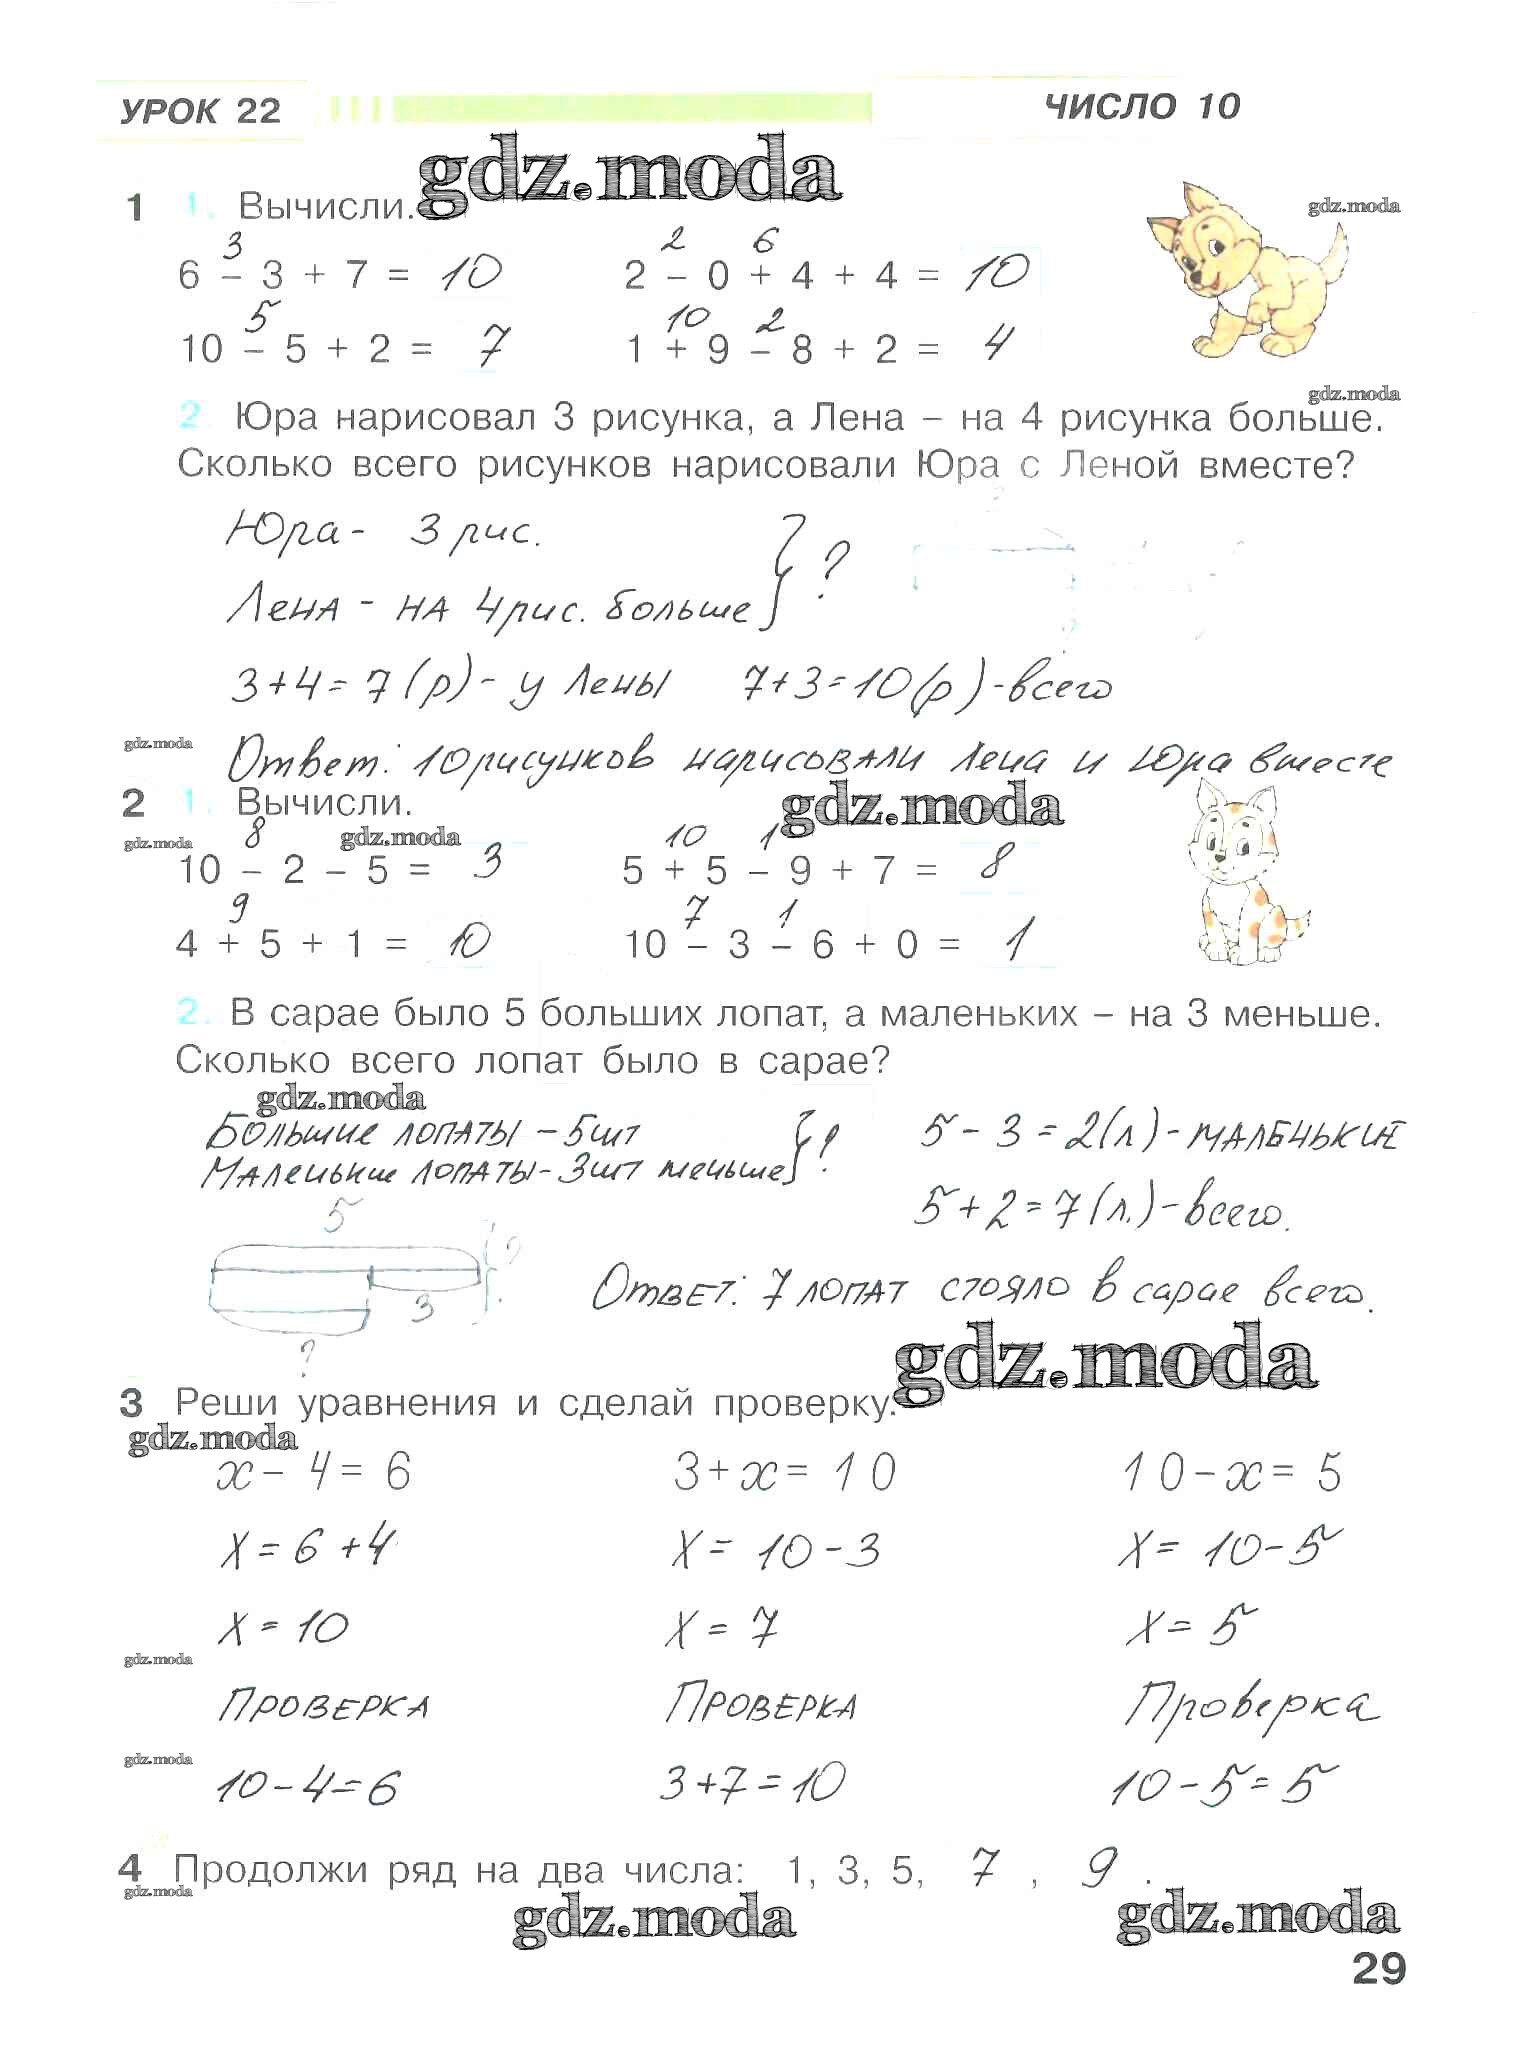 УРОК 22 ЧИСЛО 10
gdz.moda
1 1. Вычисли.
gdz.moda
3 2 6
6 – 3 + 7 = 10 2 – 0 + 4 + 4 = 10
5 10 2
10 – 5 + 2 = 7 1 + 9 – 8 + 2 = 4
gdz.moda
2. Юра нарисовал 3 рисунка, а Лена – на 4 рисунка больше.
Сколько всего рисунков нарисовали Юра с Леной вместе?
Юра - 3 рис.
Лена - на 4 рис. больше } ?
3+4=7 (р) - у Лены 7+3=10(р)-всего
gdz.moda
Ответ: 10 рисунков нарисовали Лена и Юра вместе
2 1. Вычисли. gdz.moda
gdz.moda 8 gdz.moda 10 1
10 – 2 – 5 = 3 5 + 5 – 9 + 7 = 8
9 7 1
4 + 5 + 1 = 10 10 – 3 – 6 + 0 = 1
2. В сарае было 5 больших лопат, а маленьких – на 3 меньше.
Сколько всего лопат было в сарае?
gdz.moda
Большие лопаты – 5шт } ? 5 - 3 = 2(л)-маленькие
Маленькие лопаты - 3шт меньше
5+2=7(л.)-всего.
5
?
3
?
Ответ: 7 лопат стояло в сарае всего.
gdz.moda
3 Реши уравнения и сделай проверку.
gdz.moda
x – 4 = 6 3 + x = 10 10 – x = 5
X = 6 + 4 X = 10 - 3 X = 10 - 5
X = 10 X = 7 X = 5
gdz.moda
Проверка Проверка Проверка
gdz.moda
10-4=6 3+7=10 10-5=5
4 Продолжи ряд на два числа: 1, 3, 5, 7 , 9 .
gdz.moda
gdz.moda gdz.moda
29